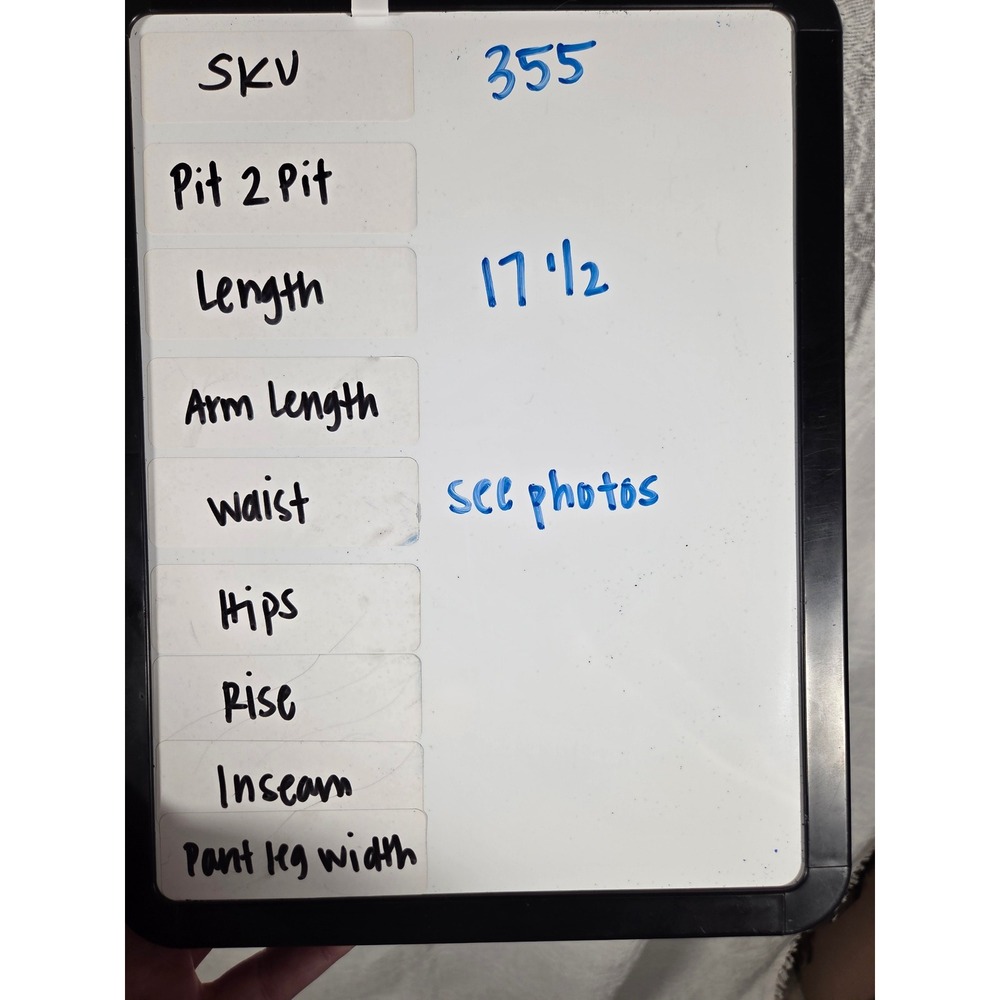 SKU 355
Pit 2 Pit
Length 17 1/2
Arm Length
Waist see photos
Hips
Rise
Inseam
Pant leg width